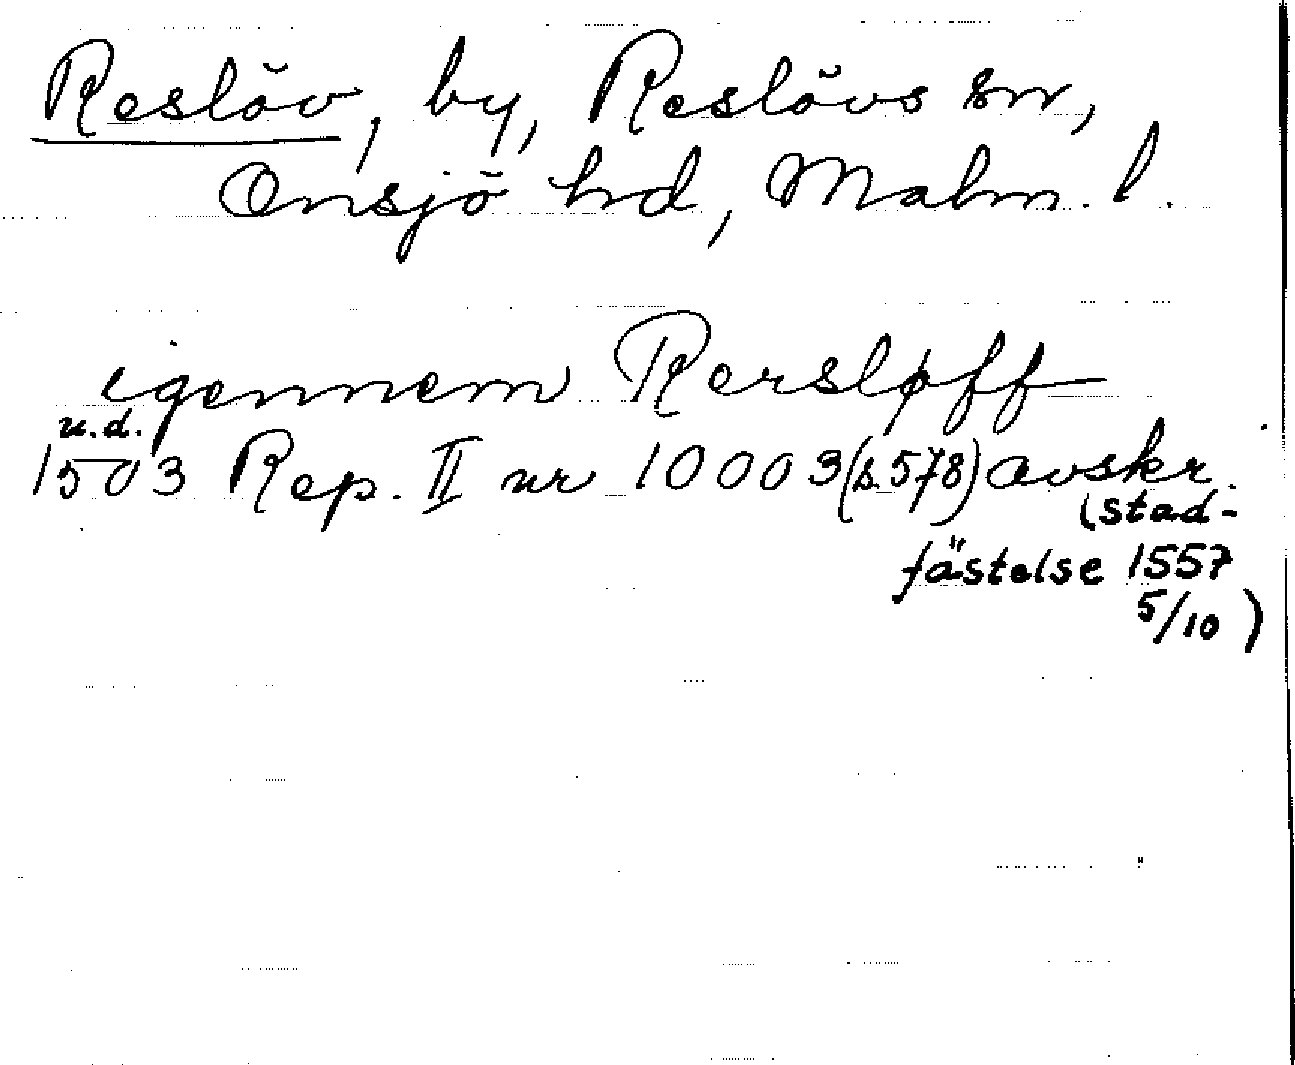 Reslöv, by, Reslövs sn,
Onsjö hd, Malm. l.
igennem Rersløff
u.d.
1503 Rep. II nr 10003 (s. 578) avskr.
(stad-
fästelse 1557
5/10)